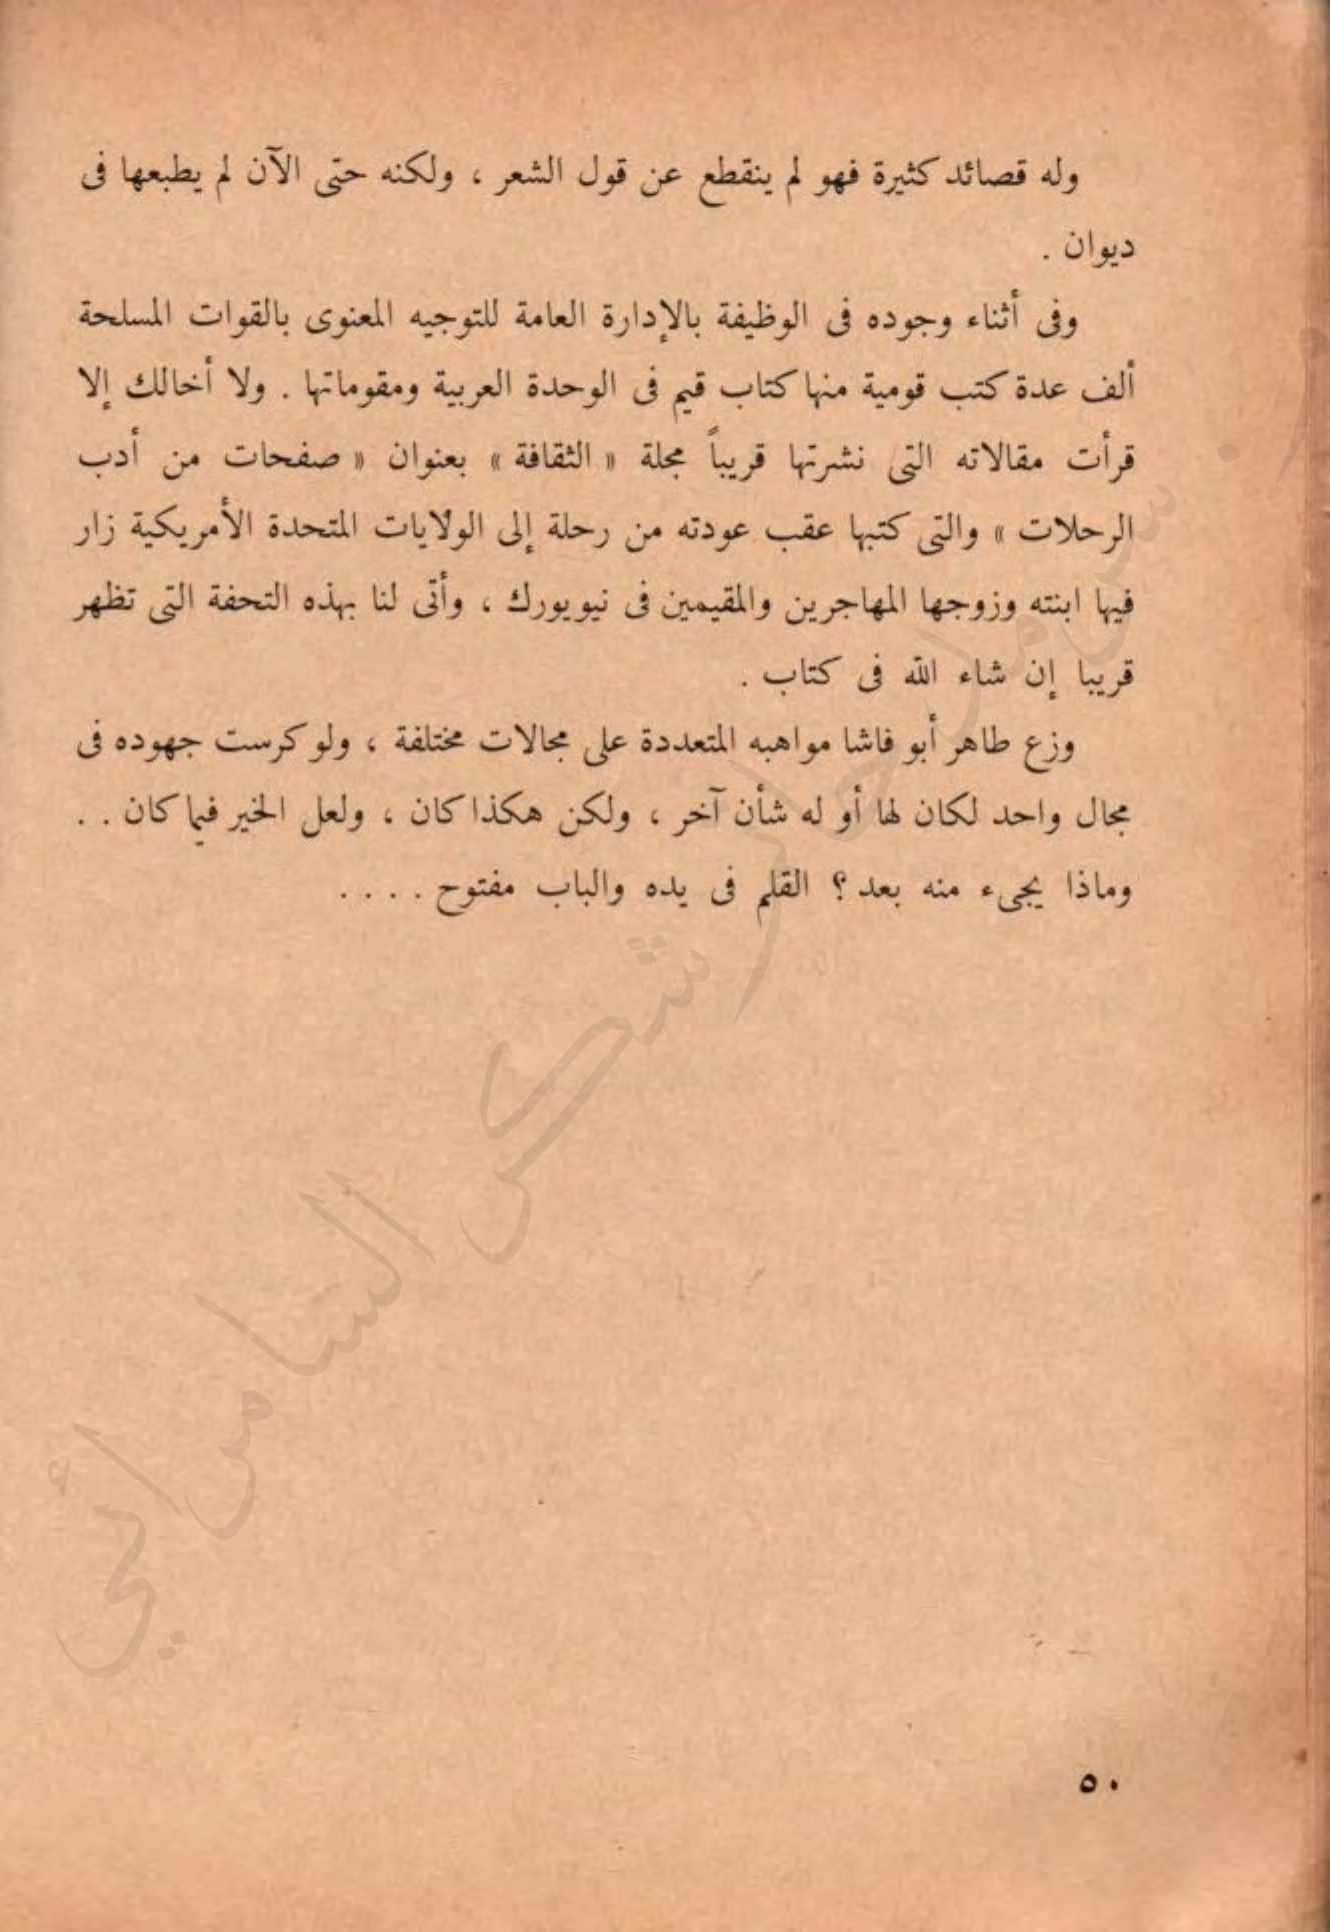 وله قصائد كثيرة فهو لم ينقطع عن قول الشعر ، ولكنه حتى الآن لم يطبعها فى
ديوان .
وفى أثناء وجوده فى الوظيفة بالإدارة العامة للتوجيه المعنوى بالقوات المسلحة
ألف عدة كتب قومية منها كتاب قيم فى الوحدة العربية ومقوماتها . ولا أخالك إلا
قرأت مقالاته التى نشرتها قريباً مجلة « الثقافة » بعنوان « صفحات من أدب
الرحلات » والتى كتبها عقب عودته من رحلة إلى الولايات المتحدة الأمريكية زار
فيها ابنته وزوجها المهاجرين والمقيمين فى نيويورك ، وأتى لنا بهذه التحفة التى تظهر
قريبا إن شاء الله فى كتاب .
وزع طاهر أبو فاشا مواهبه المتعددة على مجالات مختلفة ، ولو كرست جهوده فى
مجال واحد لكان لها أو له شأن آخر ، ولكن هكذا كان ، ولعل الخير فيما كان . .
وماذا يجىء منه بعد ؟ القلم فى يده والباب مفتوح . . . .
شكر السامرائي
٥٠